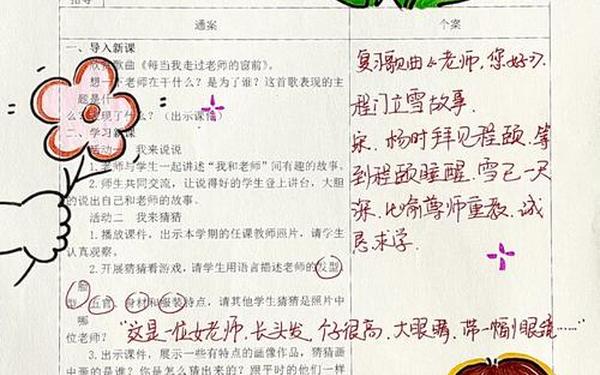 通案
个案
一、导入新课
歌曲《每当我走过老师的窗前》。
想一 老师在干什么？是为了谁？这首歌表现的主
题是什
么？ 现了什么？（出示课件）
二、学习新课
活动一 我来说说
1.老师与学生一起讲述“我和老师”间有趣的故事。
2.师生共同交流，让说得好的学生登上讲台，大胆
的说出自己和老师的故事。
活动二 我来猜猜
1.播放课件，出示本学期的任课教师照片，请学生
认真观察。
2.开展猜猜看游戏，请学生用语言描述老师的发型、
脸
型、五官、身材和服装特点，请其他学生猜猜是照片中
哪
位老师？
3.出示课件，展示一些有特点的画像作品，猜猜画
中画的是谁？你是怎么猜出来的？跟平时的他们一样
复习歌曲《老师，您好》.
程门立雪故事.
宋.杨时拜见程颐.等
到程颐睡醒.雪已一尺
深.比喻尊师重教.诚
恳求学.
“这是一位女老师.长头发.个子很高.大眼睛.带一副眼镜……”